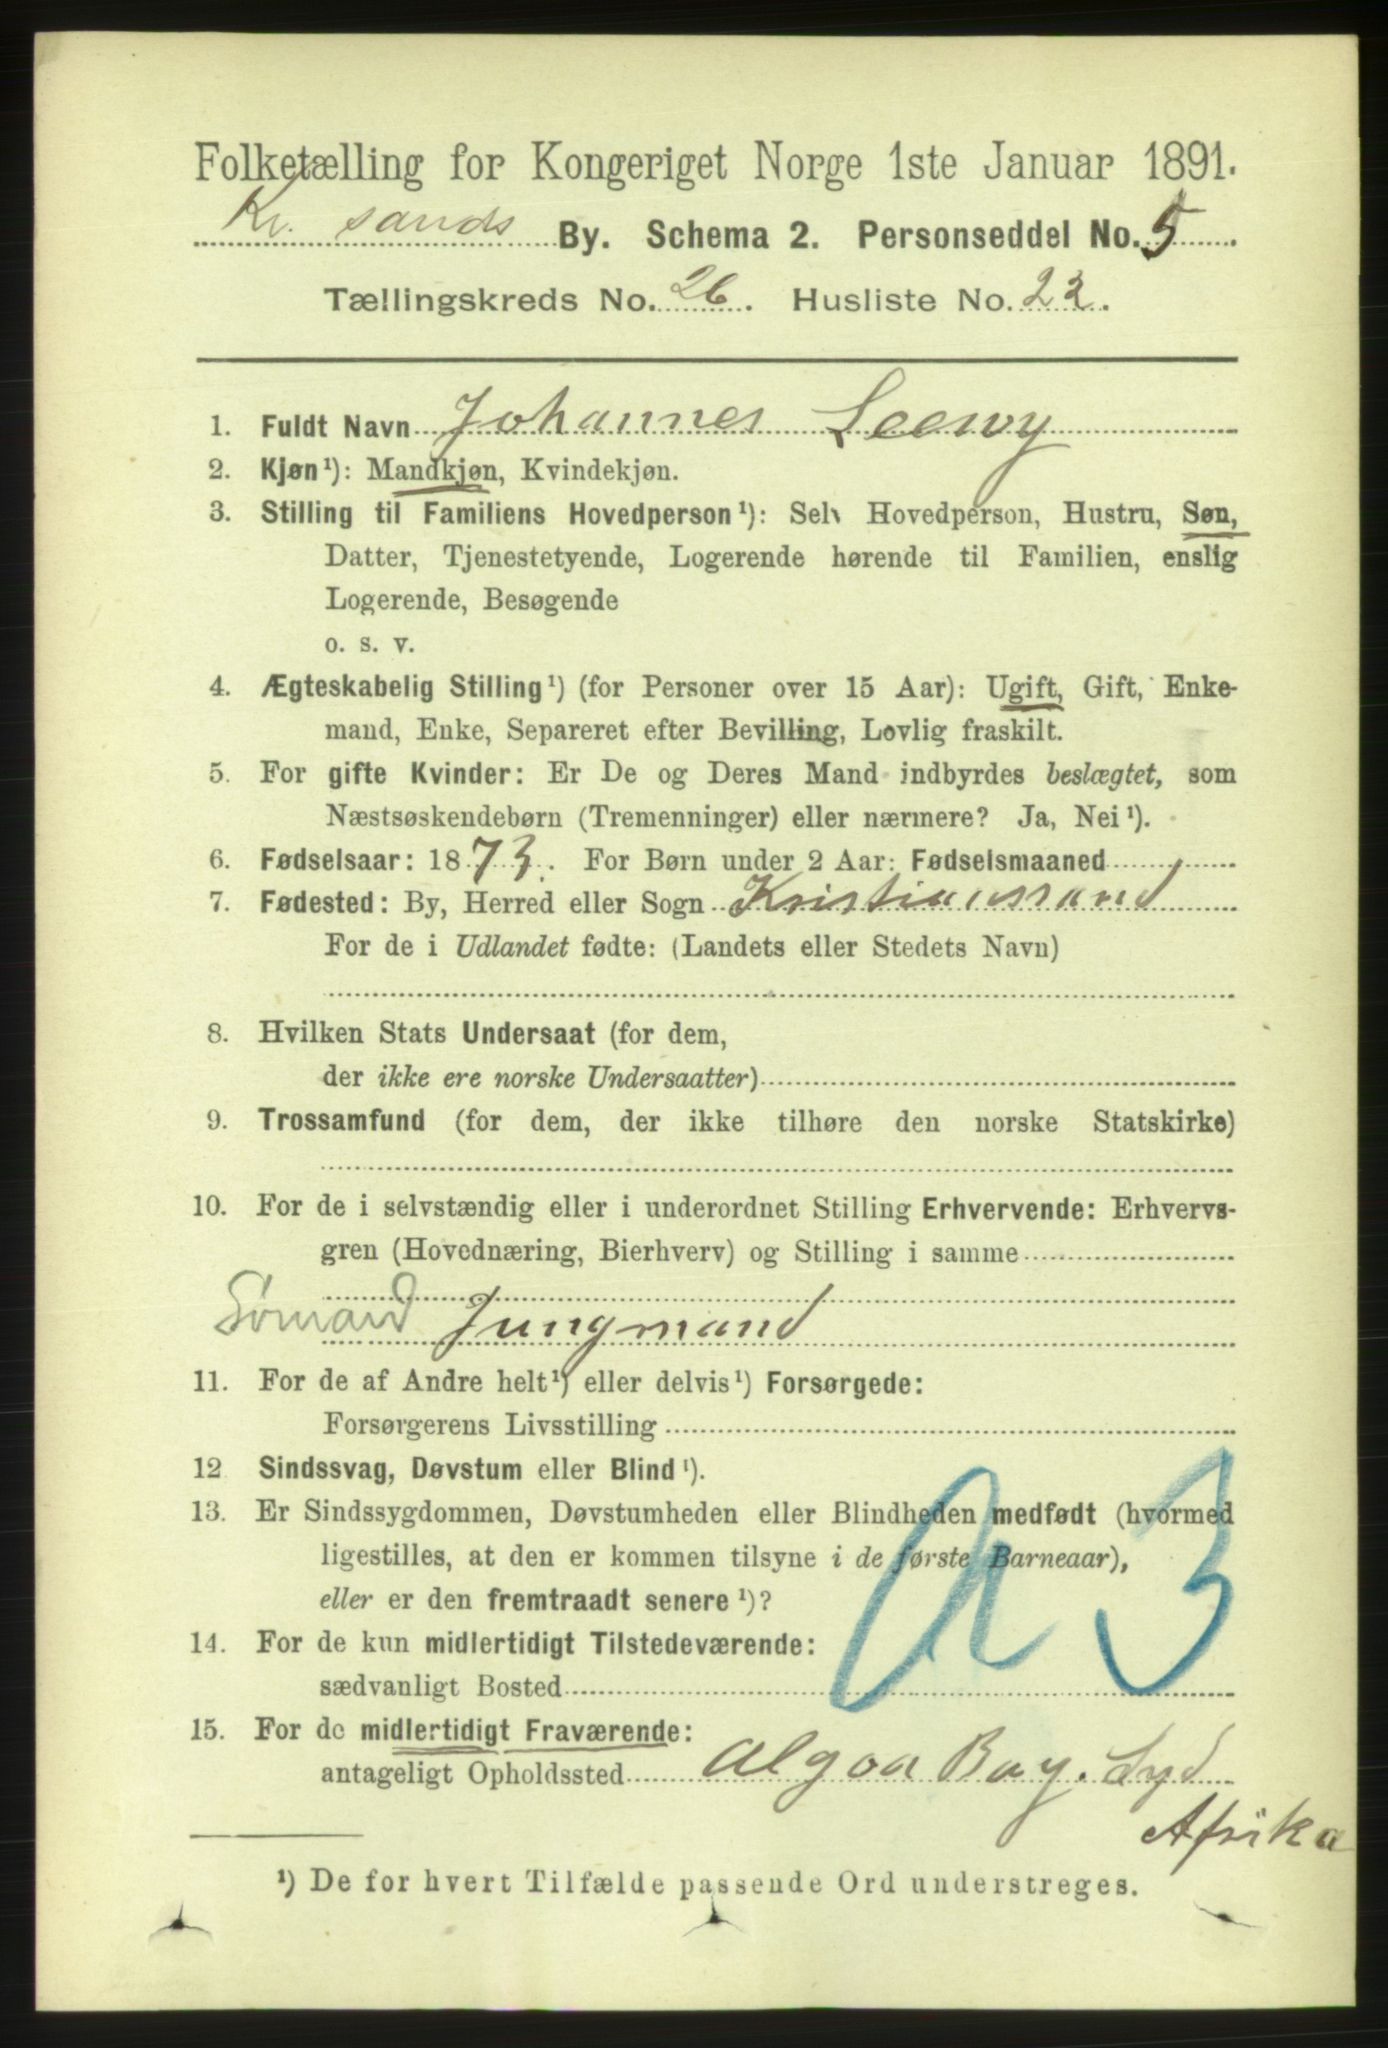 Folketælling for Kongeriget Norge 1ste Januar 1891.
Kr. sands By. Schema 2. Personseddel No. 5
Tællingskreds No. 26. Husliste No. 23.
1. Fuldt Navn Johannes Leewy
2. Kjøn ¹): Mandkjøn, Kvindekjøn.
3. Stilling til Familiens Hovedperson ¹): Selv Hovedperson, Hustru, Søn,
Datter, Tjenestetyende, Logerende hørende til Familien, enslig
Logerende, Besøgende
o. s. v.
4. Ægteskabelig Stilling ¹) (for Personer over 15 Aar): Ugift, Gift, Enke-
mand, Enke, Separeret efter Bevilling, Lovlig fraskilt.
5. For gifte Kvinder: Er De og Deres Mand indbyrdes beslægtet, som
Næstsøskendebørn (Tremenninger) eller nærmere? Ja, Nei ¹).
6. Fødselsaar: 1873. For Børn under 2 Aar: Fødselsmaaned
7. Fødested: By, Herred eller Sogn Kristianssand
For de i Udlandet fødte: (Landets eller Stedets Navn)
8. Hvilken Stats Undersaat (for dem,
der ikke ere norske Undersaatter)
9. Trossamfund (for dem, der ikke tilhøre den norske Statskirke)
10. For de i selvstændig eller i underordnet Stilling Erhvervende: Erhvervs-
gren (Hovednæring, Bierhverv) og Stilling i samme
Sømand Jungmand
11. For de af Andre helt ¹) eller delvis ¹) Forsørgede:
Forsørgerens Livsstilling
12 Sindssvag, Døvstum eller Blind ¹).
13. Er Sindssygdommen, Døvstumheden eller Blindheden medfødt (hvormed
ligestilles, at den er kommen tilsyne i de første Barneaar),
eller er den fremtraadt senere ¹)?
a 3
14. For de kun midlertidigt Tilstedeværende:
sædvanligt Bosted
15. For de midlertidigt Fraværende:
antageligt Opholdssted Algoa Bay. Syd
Afrika
¹) De for hvert Tilfælde passende Ord understreges.